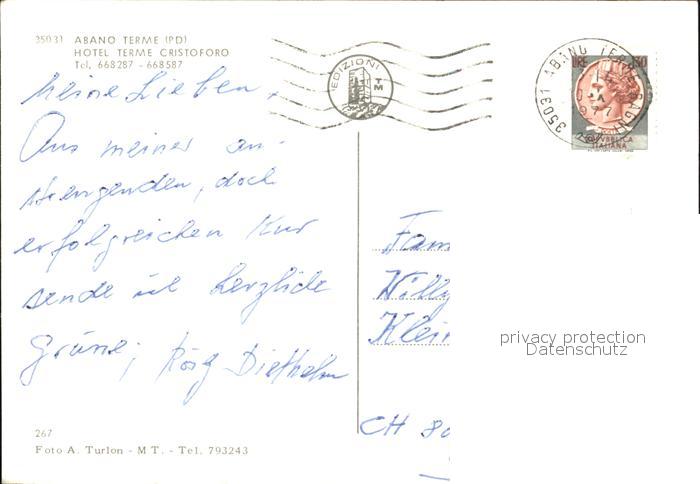 35031 ABANO TERME (PD)
HOTEL TERME CRISTOFORO
Tel. 668287 - 668587
Meine Lieben,
Aus meiner an-
strengenden, doch
erfolgreichen Kur
sende ich herzliche
Grüsse, Rösy Diethelm
267
Foto A. Turlon - MT. - Tel. 793243
EDIZIONI
TM
35031 ABANO TERME
LIRE 130
REPUBBLICA
ITALIANA
Fam
Willy
Klei
CH 80
privacy protection
Datenschutz